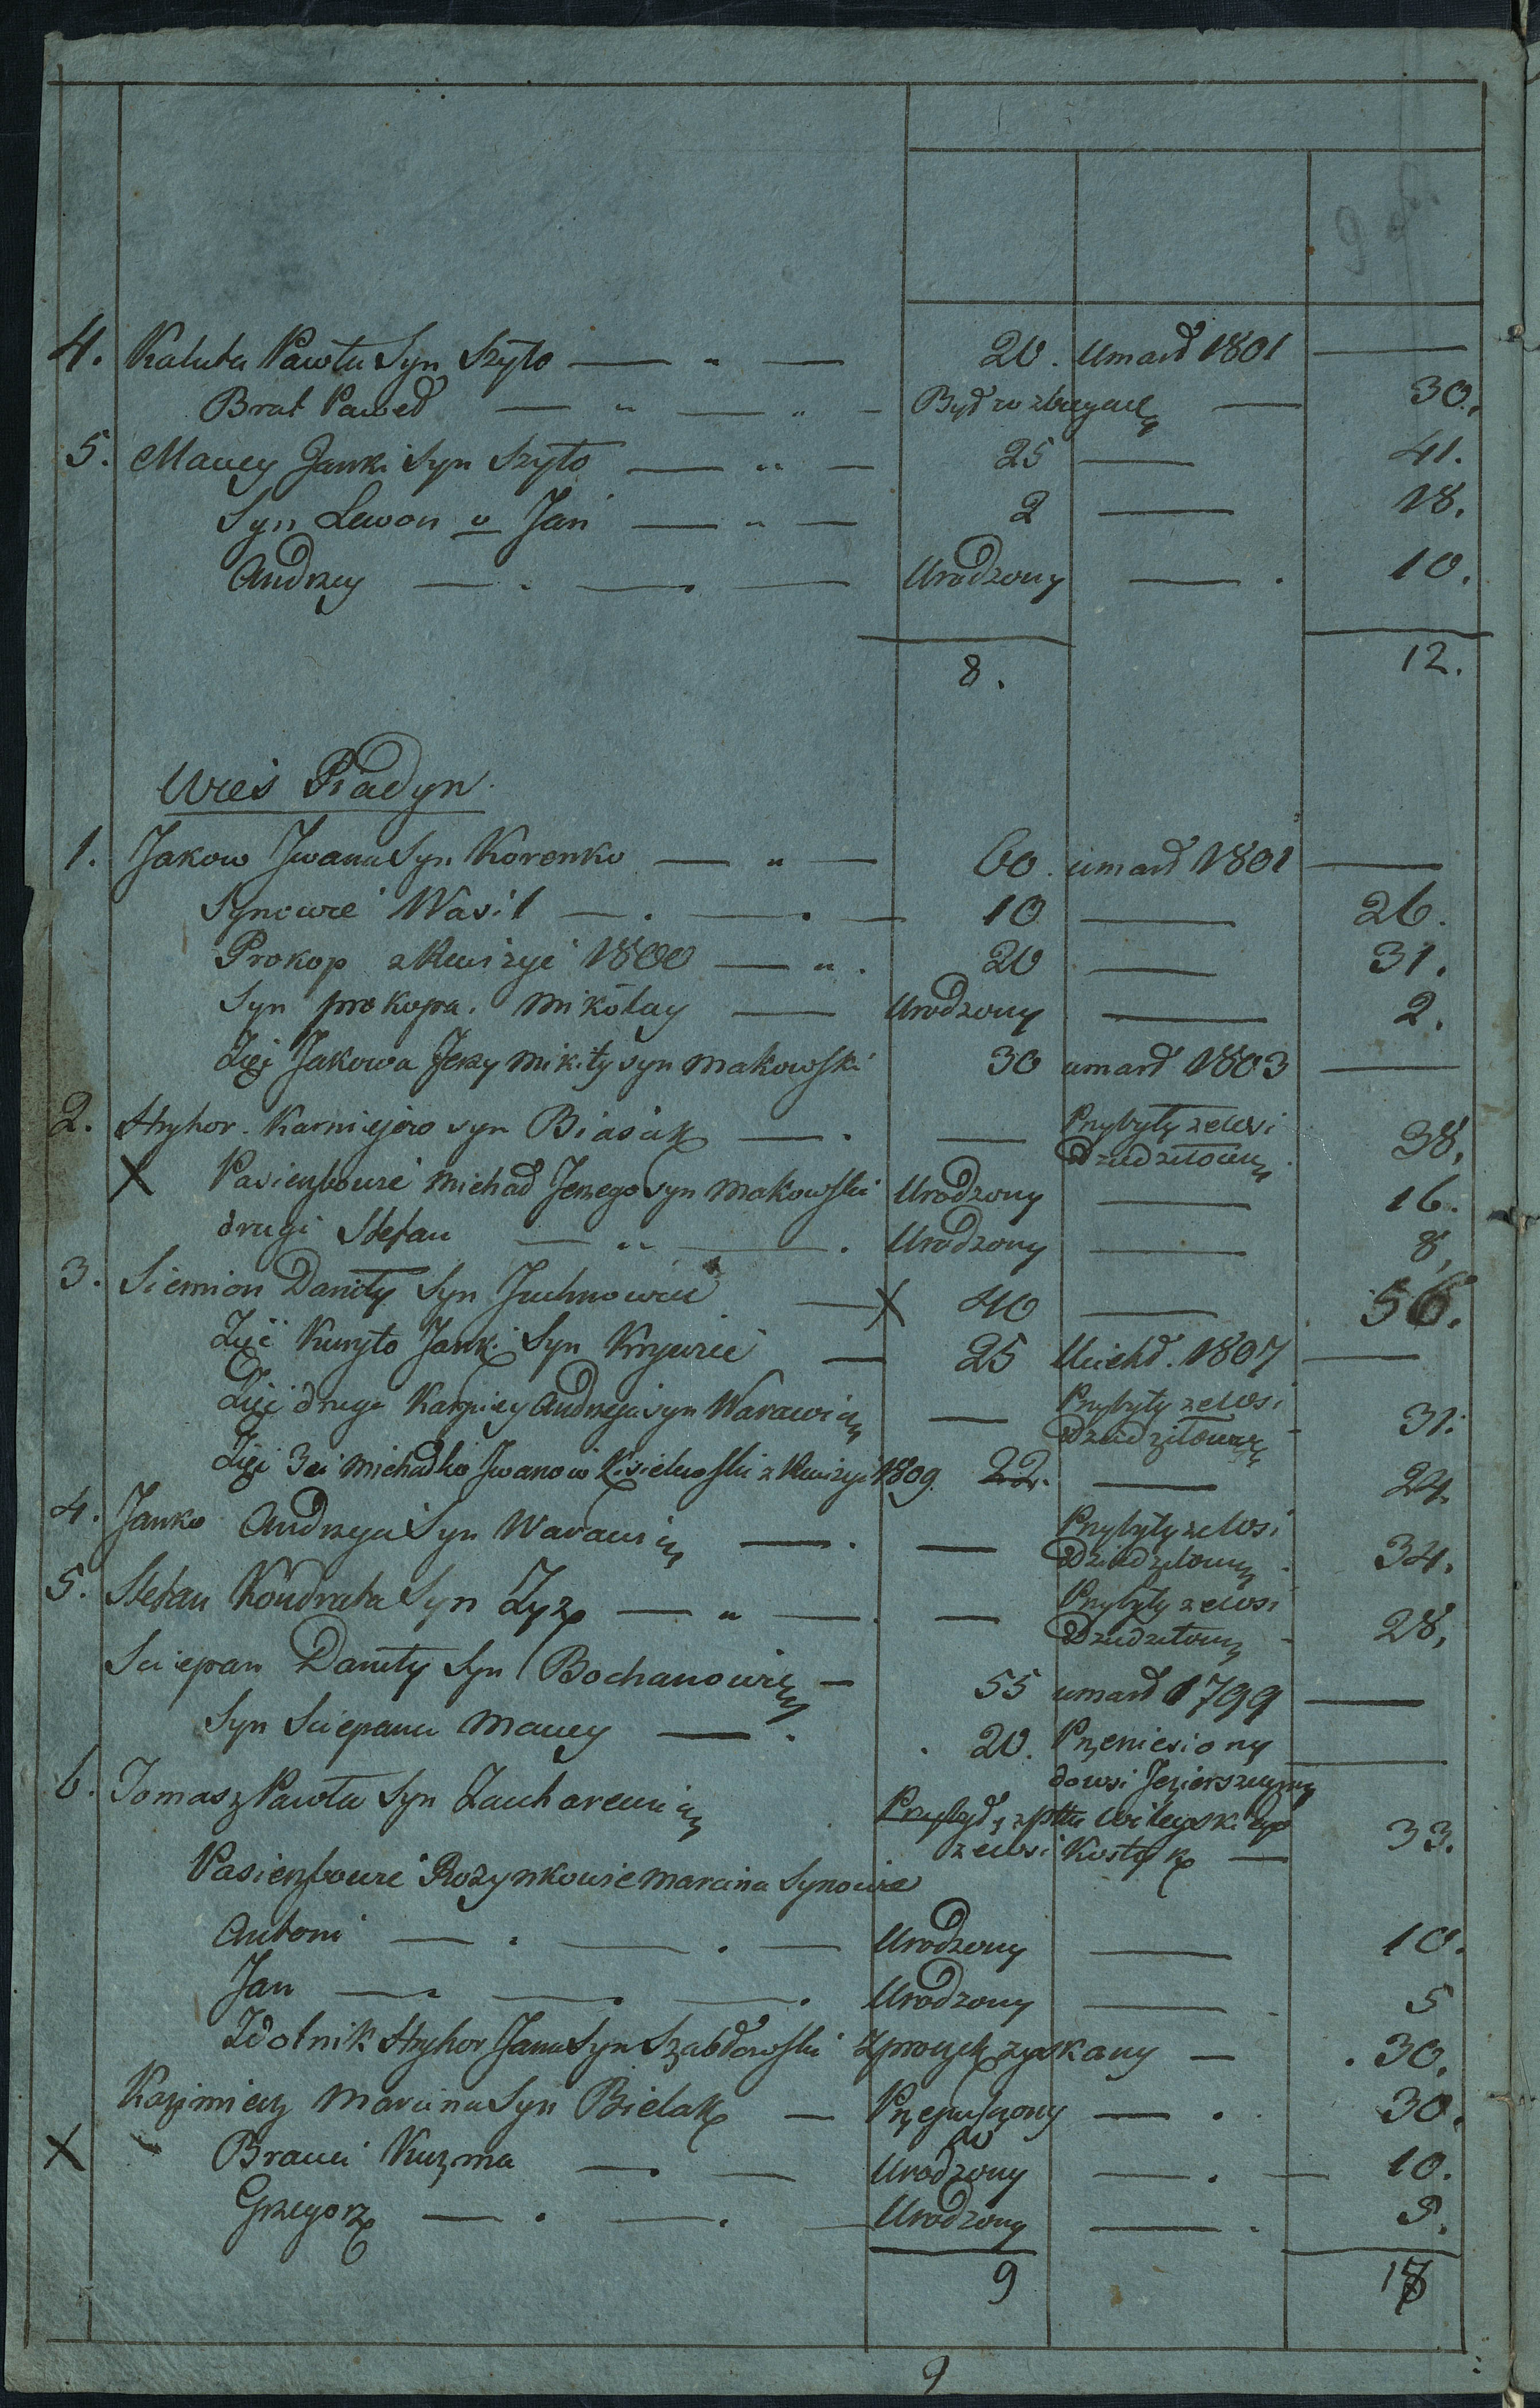 4. Kaluta Pawła Syn Szyło — " — 20. Umarł 1801 —
Brat Paweł — " — " — Był w zbiegach — 30.
5. Maciey Janki Syn Szyło — " — 25 — 41.
Syn Lewon v Jan — " — 2 — 18.
Andrzey — . — . — Urodzony — . 10.
8. 12.
Wieś Piadyn
1. Jakow Jwana Syn Korenko — " — 60. umarł 1801 —
Synowie Wasil — . — . — 10 — 26.
Prokop z Rewizyi 1800 — " . 20 — 31.
Syn prokopa. Mikołay — Urodzony — 2.
Zięć Jakowa Jerzy Mikity syn Makowski 30 umarł 1803 —
2. Hryhor. Karniejow syn Biasiuk — . — Przybyły ze wsi
Dziedziłowicz . 38,
X Pasierzbowie Michał Jerzego syn Makowski Urodzony — 16.
drugi Stefan — " — . Urodzony — 8,
3. Siemion Daniły Syn Juchnowicz — X 40 — 56.
Zięć Kuryło Janki Syn Krywicki — 25 Uciekł. 1807 —
Zięć drugi Karpiey Andrzeja syn Warawicz — Przybyły ze wsi
Dziedziłowicz - 31.
Zięć 3ci Michałko Jwanow Kisielewski z Rewizyi 1809. 22. — 24.
4. Janko Andrzeja Syn Warawicz — . — Przybyły ze wsi
Dziedziłowicz . 34.
5. Stefan Kondrata Syn Zyz — " — . — Przybyły ze wsi
Dziedziłowicz - 28,
Sciepan Daniły Syn Bochanowicz — 55 umarł 1799 —
Syn Sciepana Maciey — . . 20. Przeniesiony
do wsi Jezierszczyzny —
6. Tomasz Pawła Syn Zacharewicz Przybył z pttu Wileyskiego
ze wsi Kostyk — 33.
Pasierzbowie Rożynkowie Marcina Synowie
Antoni — . — . — Urodzony — 10.
Jan — . — . — . Urodzony — - 5
Zdolnik Hryhor Jana Syn Szabłowski Z prostych zyskany — . 30.
Kazimierz Marcina Syn Bielak — Przepuszczony — . . 30.
X Bracia Kuzma — . — Urodzony — . — 10.
Grzegorz — . — . — Urodzony — . 5.
9 17
9